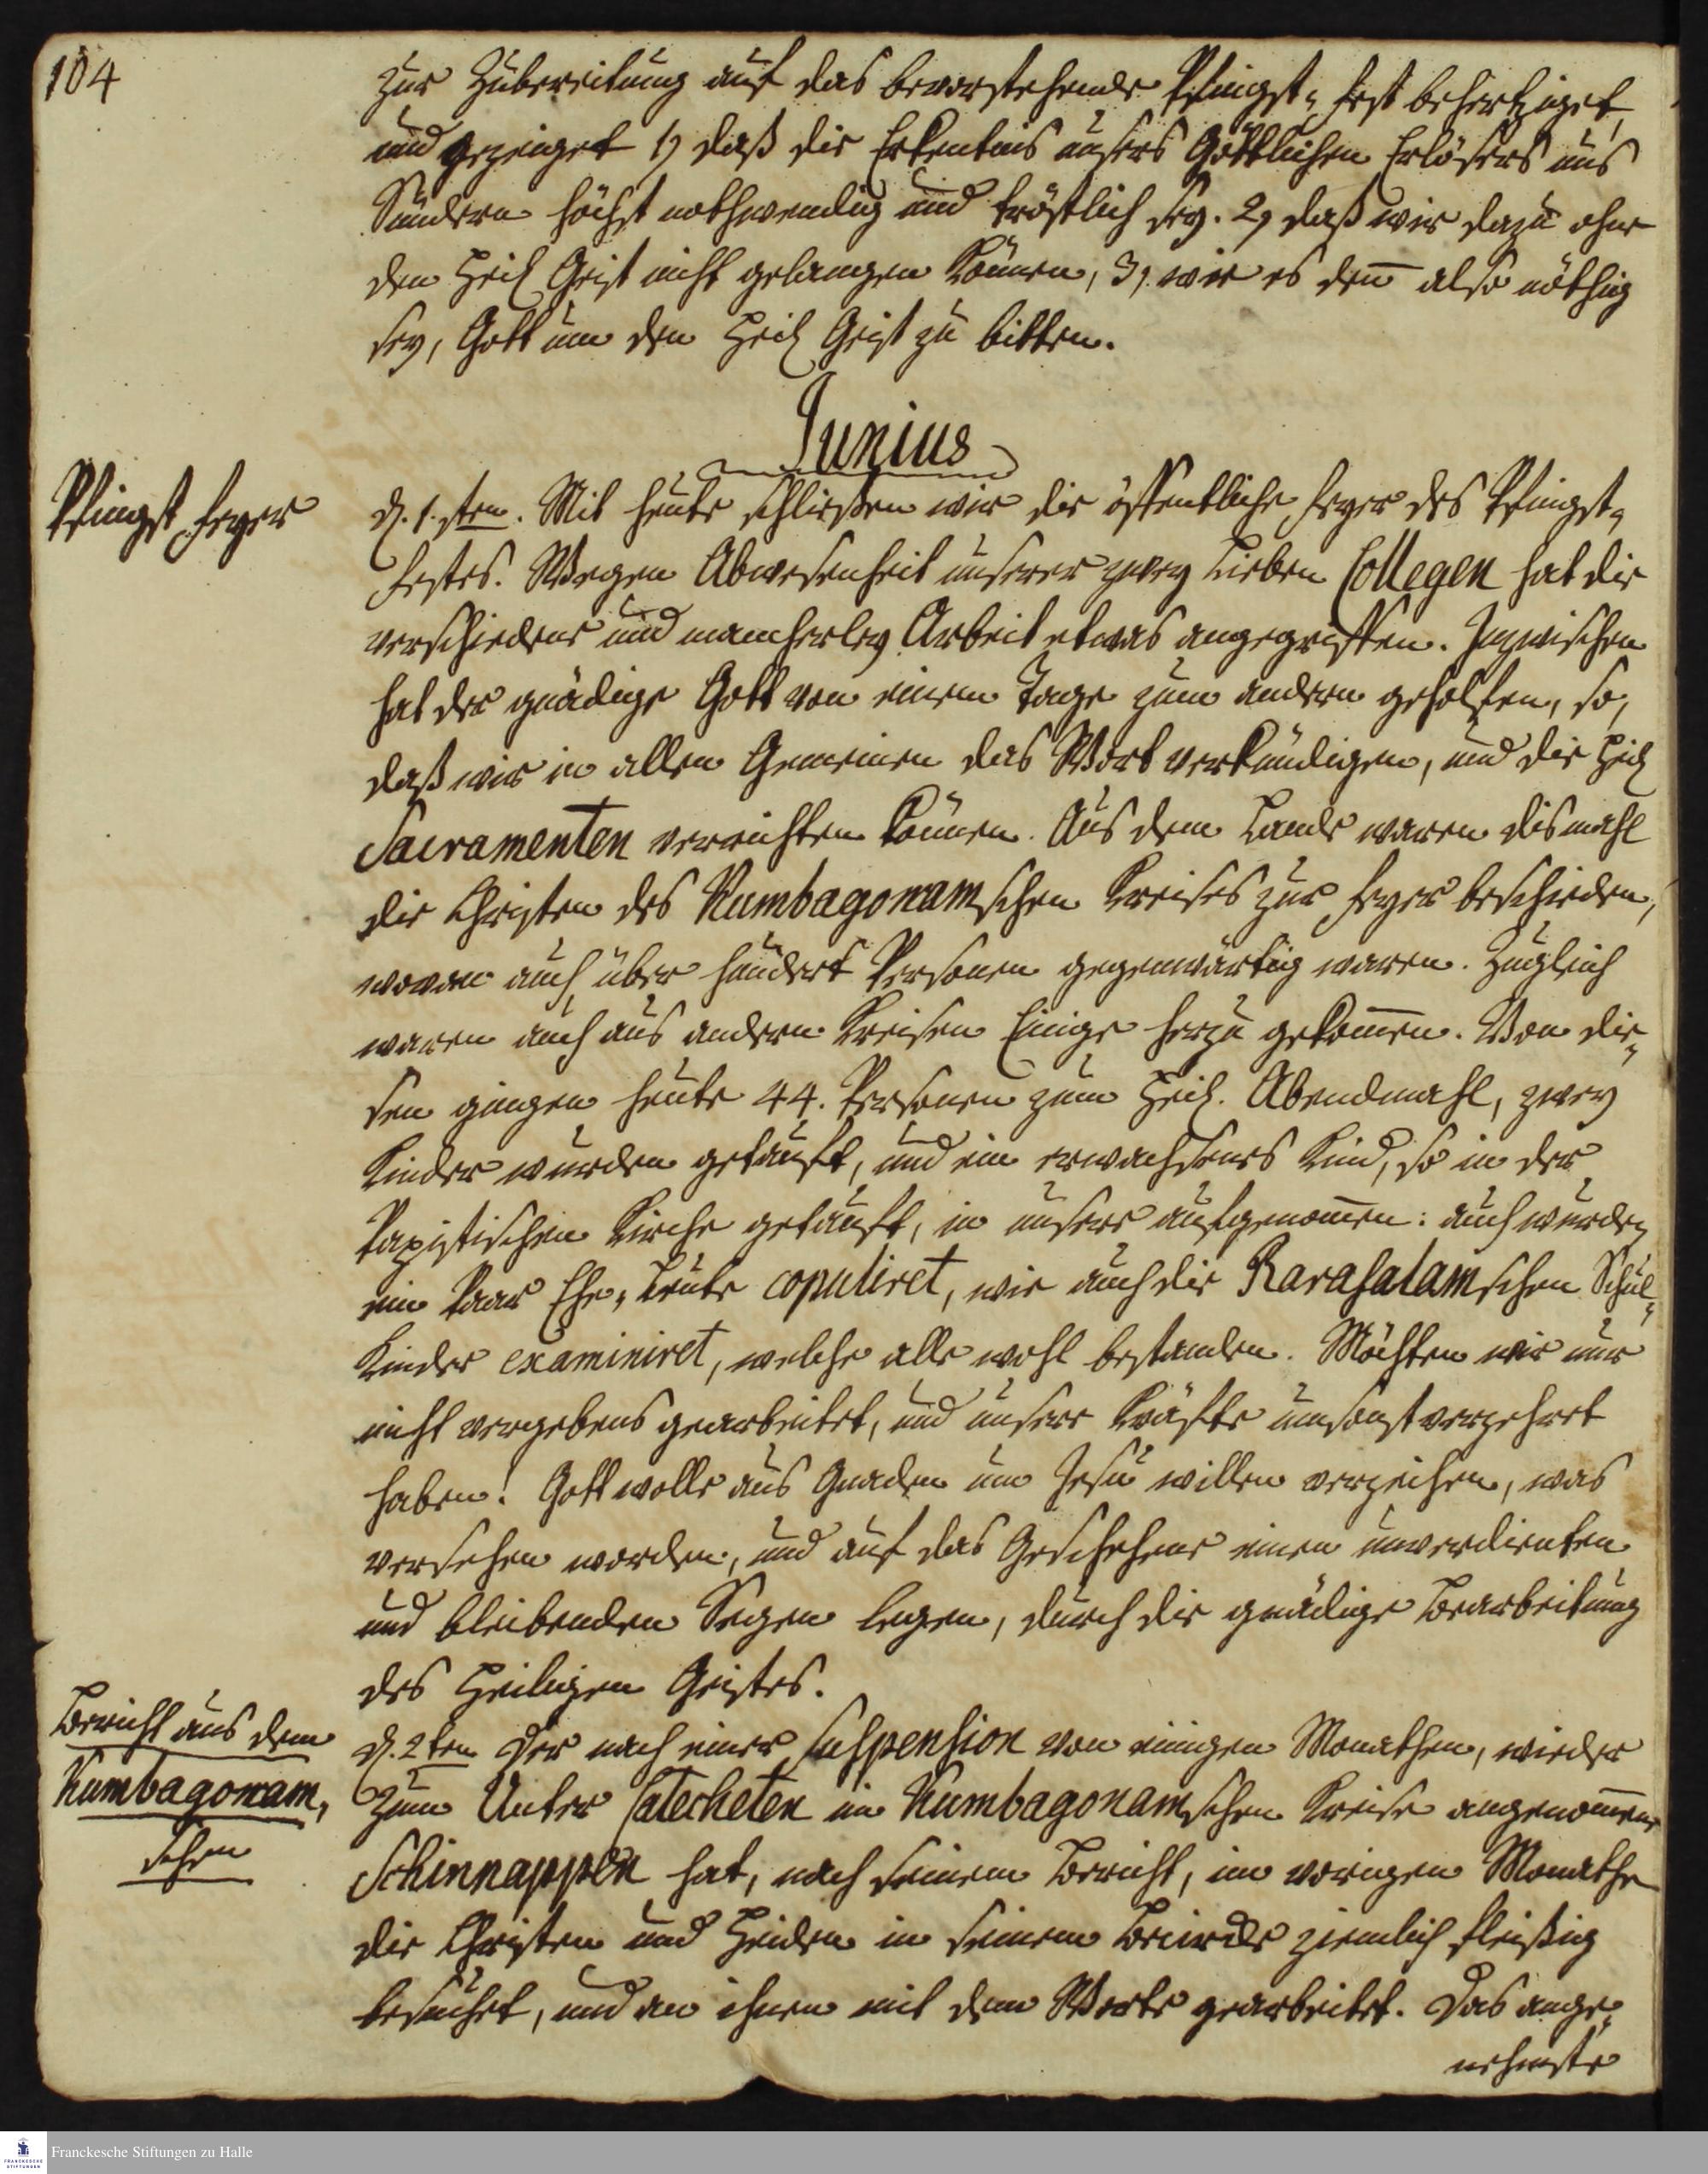 104
zur Zubereitung auf das bevorstehende Pfingst-Fest behertziget,
und gezeiget 1) daß die Erkentnis unsers Göttlichen Erlösers uns
Sündern höchst nothwendig und tröstlich sey. 2) daß wir dazu ohne
den Heil Geist nicht gelangen können, 3). wie es deñ also nöthig
sey, Gott um den Heil Geist zu bitten.
Junius
Pfingst Feyer
d. 1.sten. Mit heute schließen wir die öffentliche Feyer des Pfingst-
Festes. Wegen Abwesenheit unserer zwey lieben Collegen hat die
verschiedene und mancherley Arbeit etwas angegriffen. Inzwischen
hat der gnädige Gott von einem Tage zum andern geholfen, so,
daß wir in allen Gemeinen das Wort verkündigen, und die Heil
Sacramenten verrichten können. Aus dem Lande waren dismahl
die Christen des Kumbagonamschen Kreises zur Feyer beschieden,
wovon auch über hundert Personen gegenwärtig waren. Zugleich
waren auch aus andern Kreisen Einige herzu gekom̄en. Von die-
sen gingen heute 44. Personen zum Heil. Abendmahl, zwey
Kinder wurden getauft, und ein erwachsenes Kind, so in der
Papistischen Kirche getauft, in unsere aufgenom̄en: auch wurden
ein Paar Ehe-Leute copuliret, wie auch die Rarasalamschen Schul-
Kinder examiniret, welche alle wohl bestanden. Möchten wir nur
nicht vergebens gearbeitet, und unsere Kräfte umsonst verzehret
haben! Gott wolle aus Gnaden um Jesu willen verzeihen, was
versehen worden, und auf das Geschehene einen unverdienten
und bleibenden Segen legen, durch die gnädige Bearbeitung
des Heiligen Geistes.
Bericht aus dem
Kumbagonam-
schen
d. 2ten Der nach einer Suspension von einigen Monathen, wieder
zum Unter Catecheten im Kumbagonamschen Kreise angenom̄ene
Schinnappen hat, nach seinem Bericht, im vorigen Monathe
die Christen und Heiden in seinem Bezircke ziemlich fleißig
besuchet, und an ihnen mit dem Worte gearbeitet. Das ange-
nehmste
Franckesche Stiftungen zu Halle